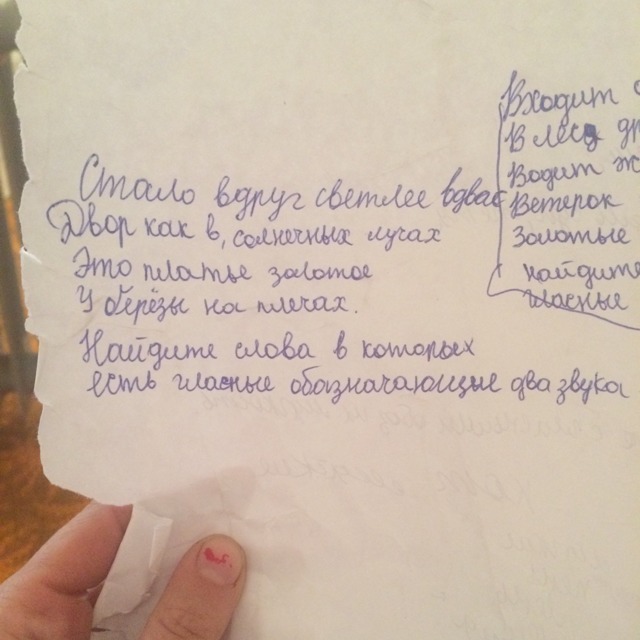 Стало вдруг светлее вдвое
Двор как в солнечных лучах
Это платье золотое
У берёзы на плечах.
Найдите слова в которых
есть гласные обозначающие два звука
Входит
В лесу
Водит
Ветерок
Золотые
найдите
гласные